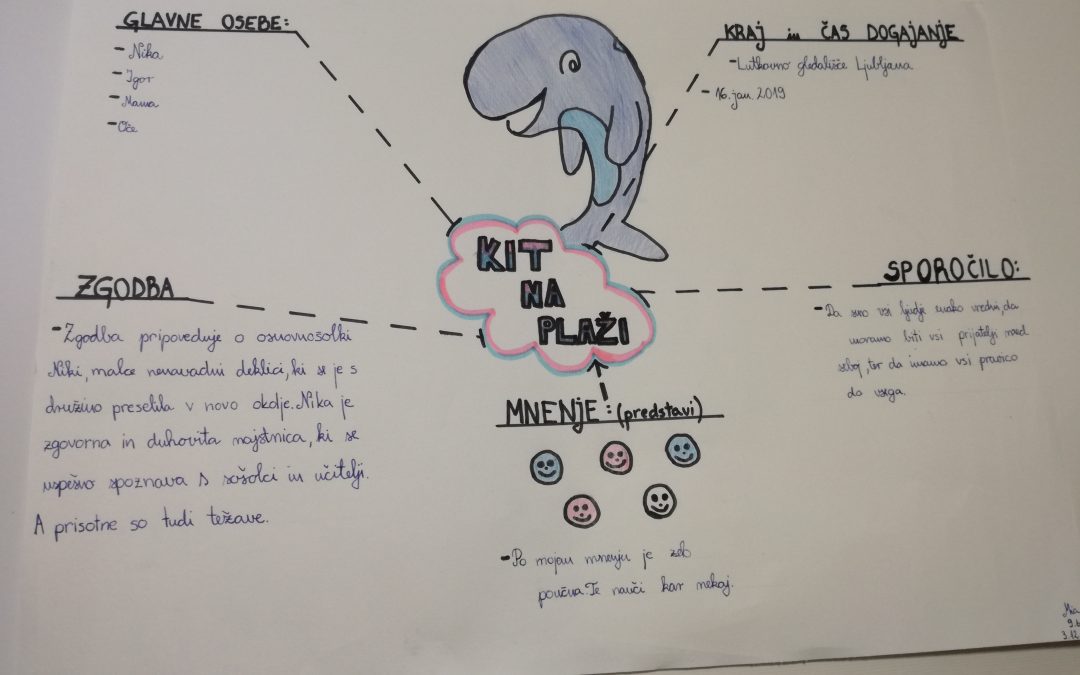 GLAVNE OSEBE:
- Nika
- Igor
- Mama
- Oče
KRAJ in ČAS DOGAJANJE
- Lutkovno gledališče Ljubljana
- 16. jan. 2019
KIT
NA
PLAŽI
ZGODBA
- Zgodba pripoveduje o osnovnošolki
Niki, malce nenavadni deklici, ki se je s
družino preselila v novo okolje. Nika je
zgovorna in duhovita najstnica, ki se
uspešno spoznava s sošolci in učitelji.
A prisotne so tudi težave.
SPOROČILO:
- Da smo vsi ljudje enako vredni, da
moramo biti vsi prijatelji med
seboj, ter da imamo vsi pravico
do vsega.
MNENJE: (predstavi)
- Po mojem mnenju je zelo
poučna. Te nauči kar nekaj.
9.b
3.12.